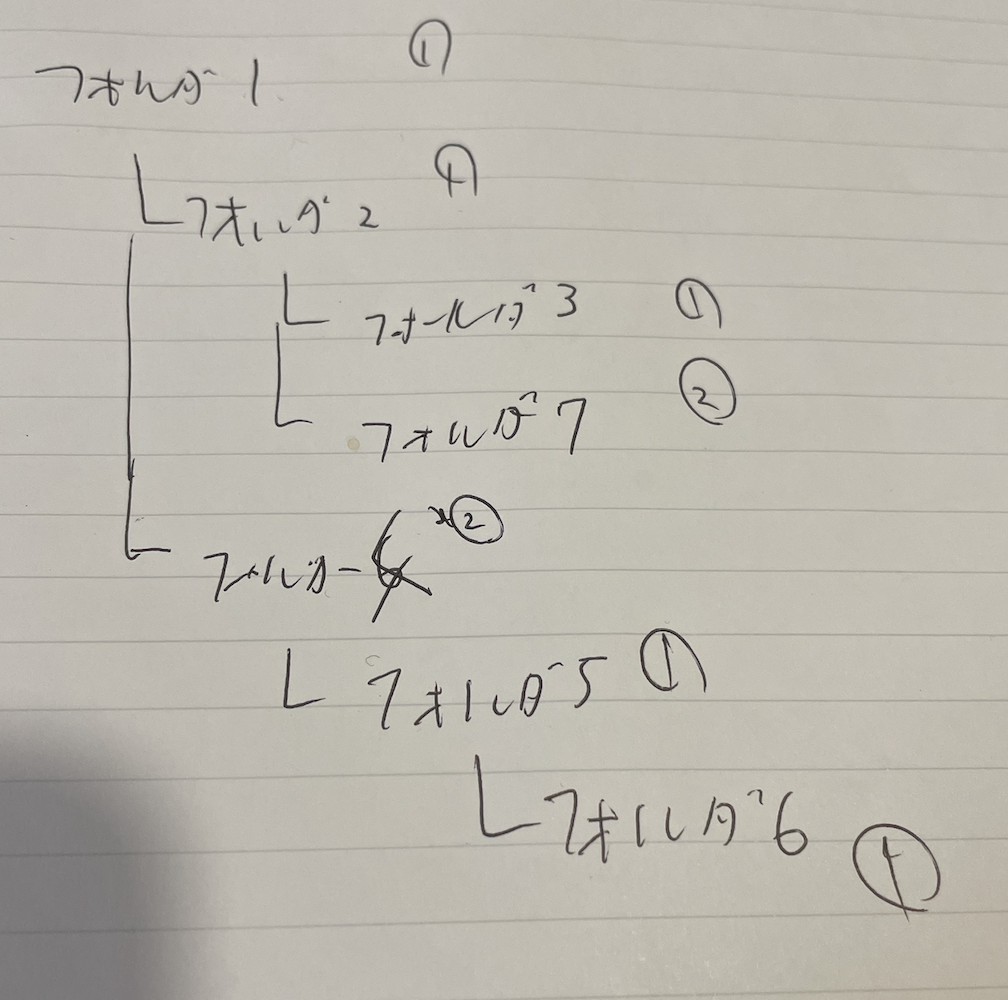 フォルダ1 ①
フォルダ2 ①
フォルダ3 ①
フォルダ7 ②
フォルダ ②
フォルダ5 ①
フォルダ6 ①